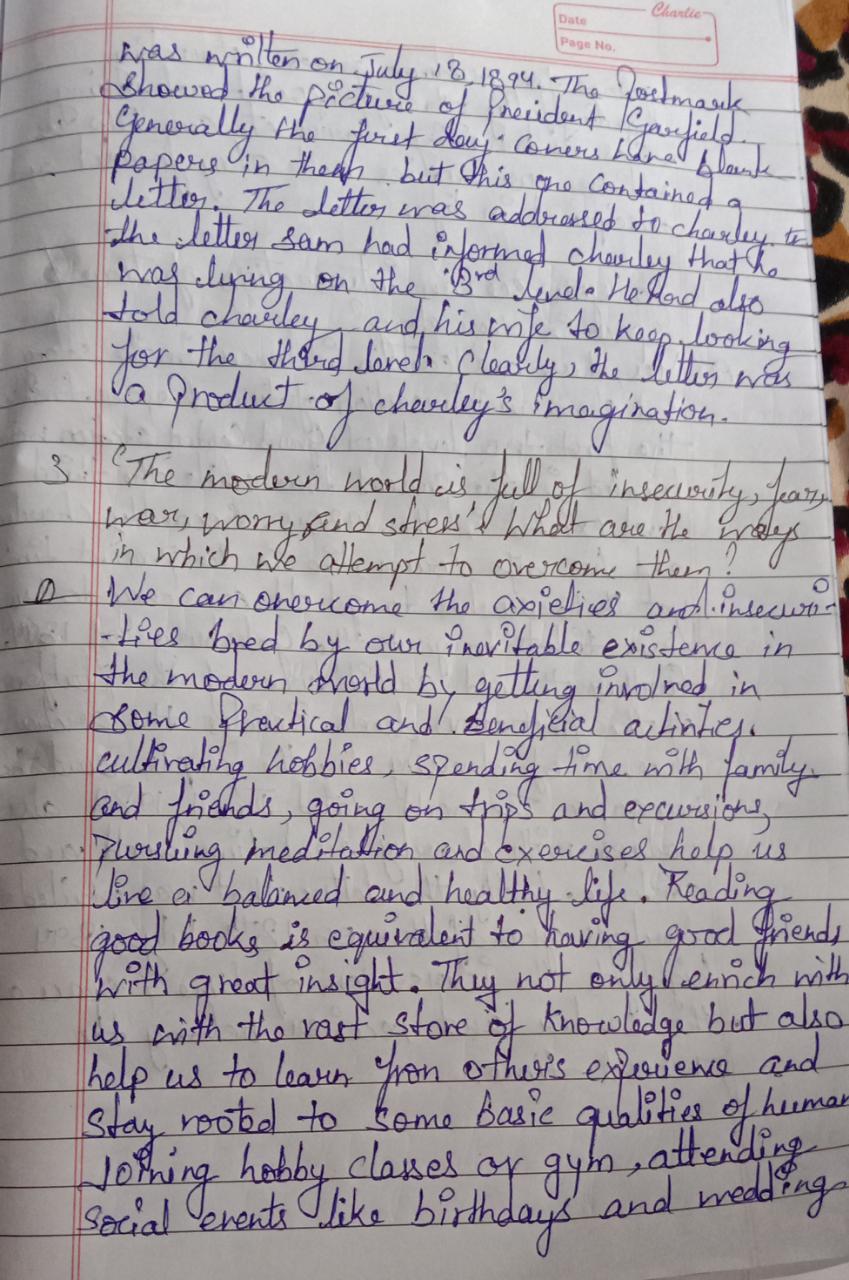 Charlie
Date
Page No.
was written on July 18, 1894. The Postmark
showed the picture of President Garfield.
Generally the first day. Covers have blank
papers in them but this one contained a
letter. The letter was addressed to charley. In
the letter Sam had informed charley that he
was lying on the 3rd level. He had also
told charley and his wife to keep looking
for the third level. Clearly, the letter was
a product of charley's imagination.
3. 'The modern world is full of insecurity, fear,
war, worry and stress'. What are the ways
in which we attempt to overcome them?
We can overcome the axieties and insecuri-
-ties bred by our inevitable existence in
the modern world by getting involved in
some Practical and beneficial activities.
cultivating hobbies, spending time with family
and friends, going on trips and excursions,
Pursuing meditation and exercises help us
live a balanced and healthy life. Reading
good books is equivalent to having good friends
with great insight. They not only enrich with
us with the vast store of knowledge but also
help us to learn from other's experience and
stay rooted to some basic qualities of human
Joining hobby classes or gym, attending
social events like birthdays and wedding